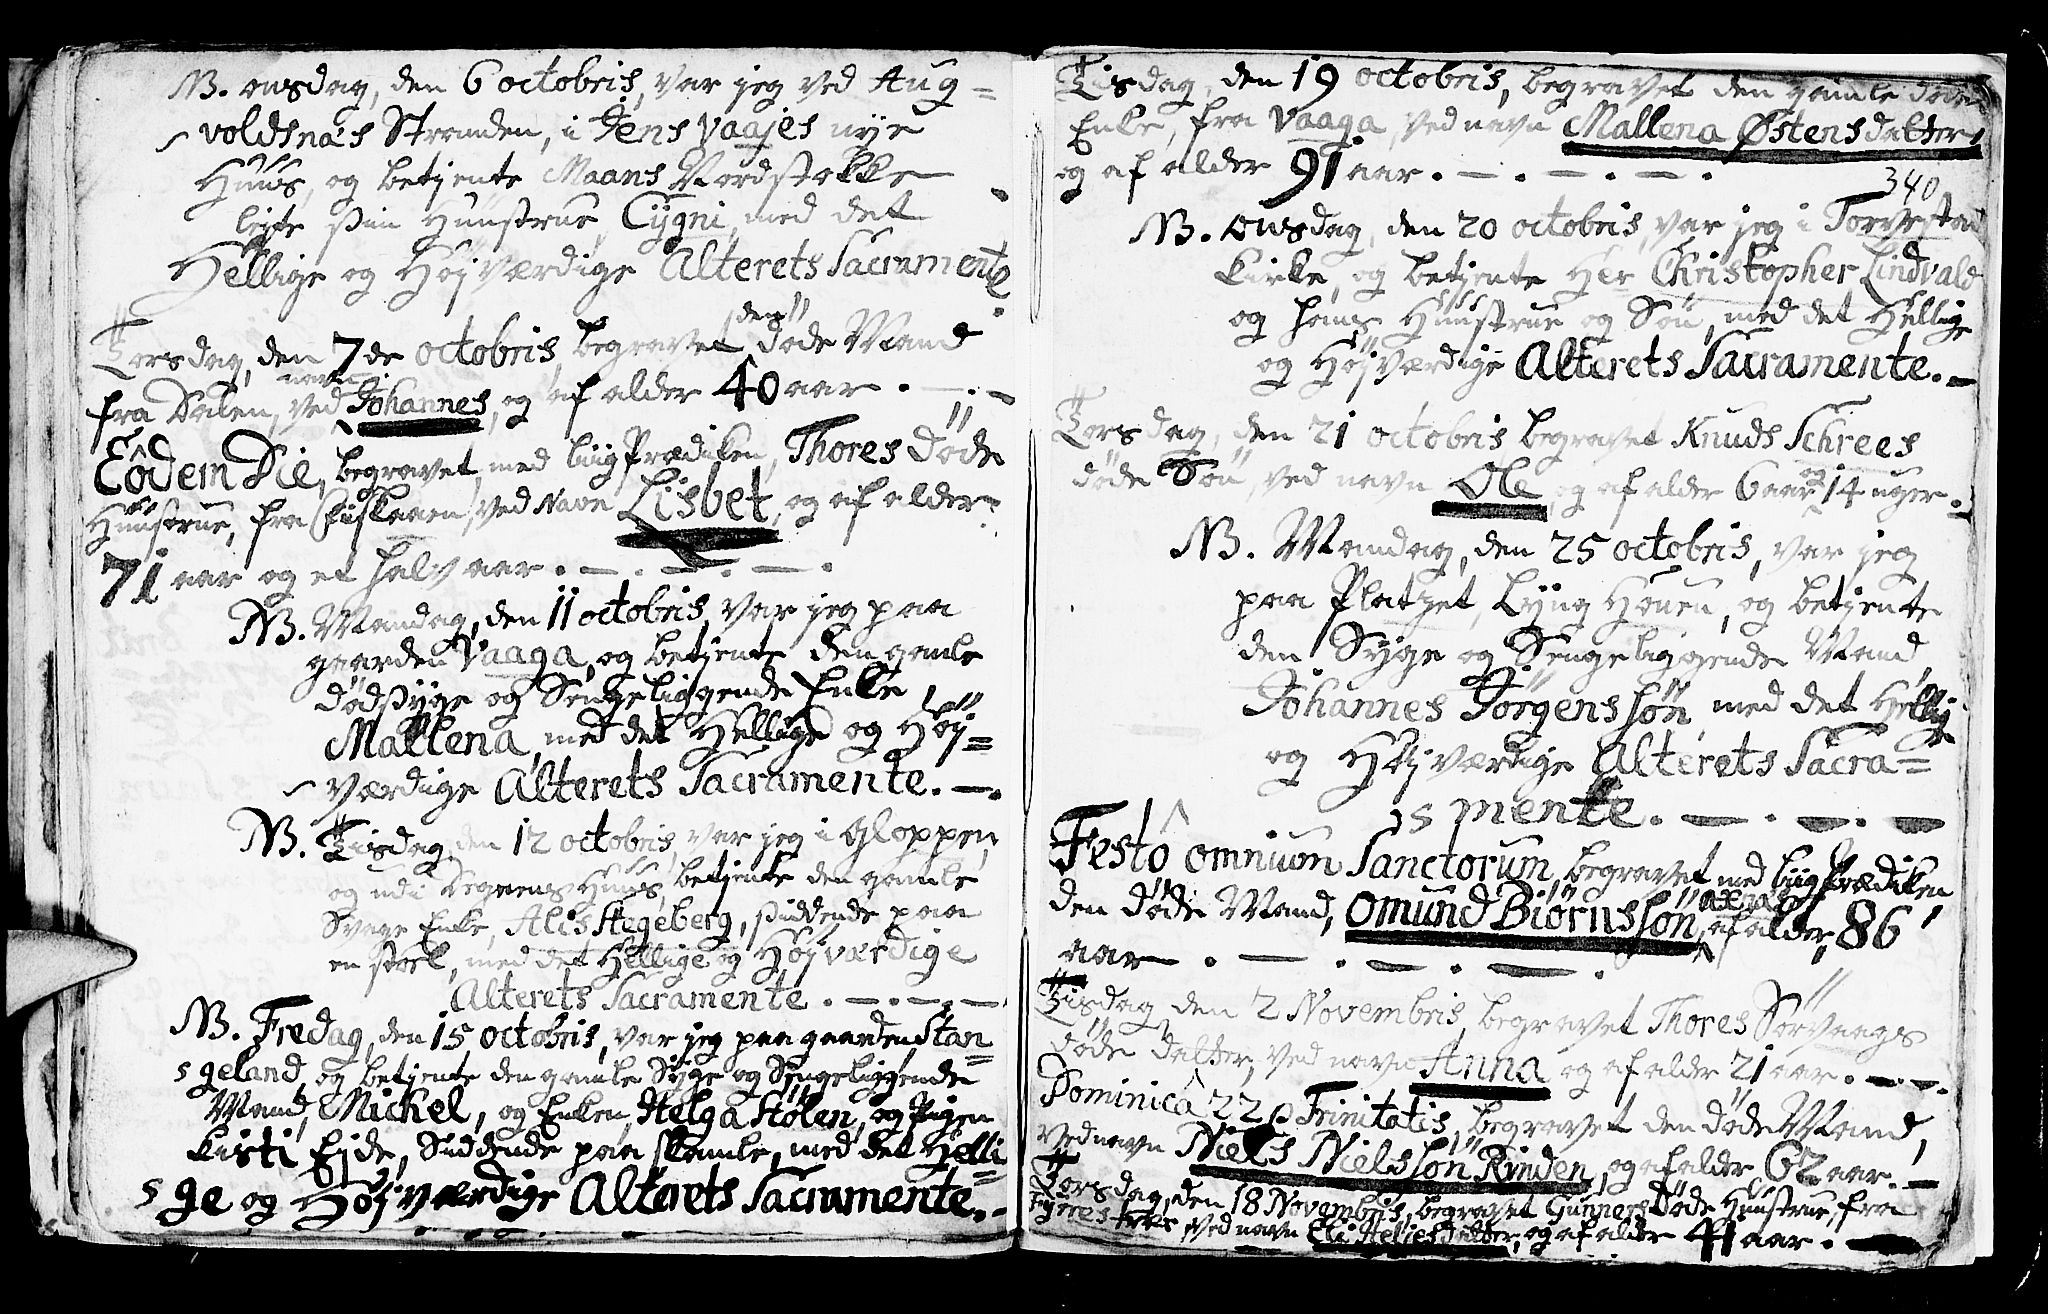 NB. onsdag, den 6 octobris, var jeg ved Aug=
voldsnæs Stranden, i Jens Vaajes nÿe
Huus, og betjente Maans Nordstokke
lejte sin Huustrue, Cÿgni, med det
Hellige og Højværdige Alterets Sacramente
Torsdag, den 7de octobris, begravet den døde Mand
fra Dalen, ved navn Johannes, og af alder 40 aar.
Eôdem Die, begravet, med liigPrædiken, Thores døde
Huustrue, fra Fiskaaen, ved Navn Lisbet, og af alder
71 aar og et halv aar.
NB. Mandag, den 11 octobris, var jeg paa
gaarden Vaaga, og betjente den gamle
dødsÿge og Sengeliggende Enke,
Mallena, med det Hellige og Høj=
værdige Alterets Sacramente.
NB. Tisdag, den 12 octobris, var jeg i Gloppen,
og udi Degnens Huus, betjente den gamle
Svage Enke, Alis Stegeberg, siddende paa
en stoel, med det Hellige og Højværdige
Alterets Sacramente.
NB. Fredag, den 15 octobris, var jeg paa gaarden, Stan=
geland, og betjente den gamle Sÿge og Sengeliggende
Mand, Michel, og Enken, Helga Stølen, og Pigen
Kisti Ejde, Siddende paa skamle, med det Helli=
ge og Højværdige Alterets Sacramente.
Tisdag, den 19 octobris, begravet den gamle døde
Enke, fra Vaaga, ved navn Mallena Østensdatter,
og af alder 91 aar.
340
NB. Onsdag, den 20 octobris, var jeg i Torvestad
Kirke, og betjente Her Christopher Lindvald
og hans Huustrue og Søn, med det Hellige
og Højværdige Alterets Sacramente.
Torsdag, den 21 octobris, begravet Knuds Schrees
døde Søn, ved navn Ole og af alder 6 aar og 14 uger.
NB. Mandag, den 25 octobris, var jeg
paa Platzet, Lÿng Houen, og betjente
den Sÿge og Sengeliggende Mand,
Johannes Jørgenssøn, med det Hellige
og Højværdige Alterets Sacra=
mente.
Festô omnium Sanctorum, begravet med liigPrædiken
den døde Mand, Omund Biørnssøn, af alder, 86
aar
Tisdag den 2 Novembris, begravet Thores Sørvaags
døde datter, ved navn Anna og af alder 21 aar.
Dominicâ 22 p Trinitatis, begravet den døde Mand,
ved navn Niels Nielssøn Rinden, og af alder 62 aar.
Torsdag, den 18 Novembris, begravet Gunners døde Huustrue, fra
ved navn Eli datter, og af alder 41 aar.